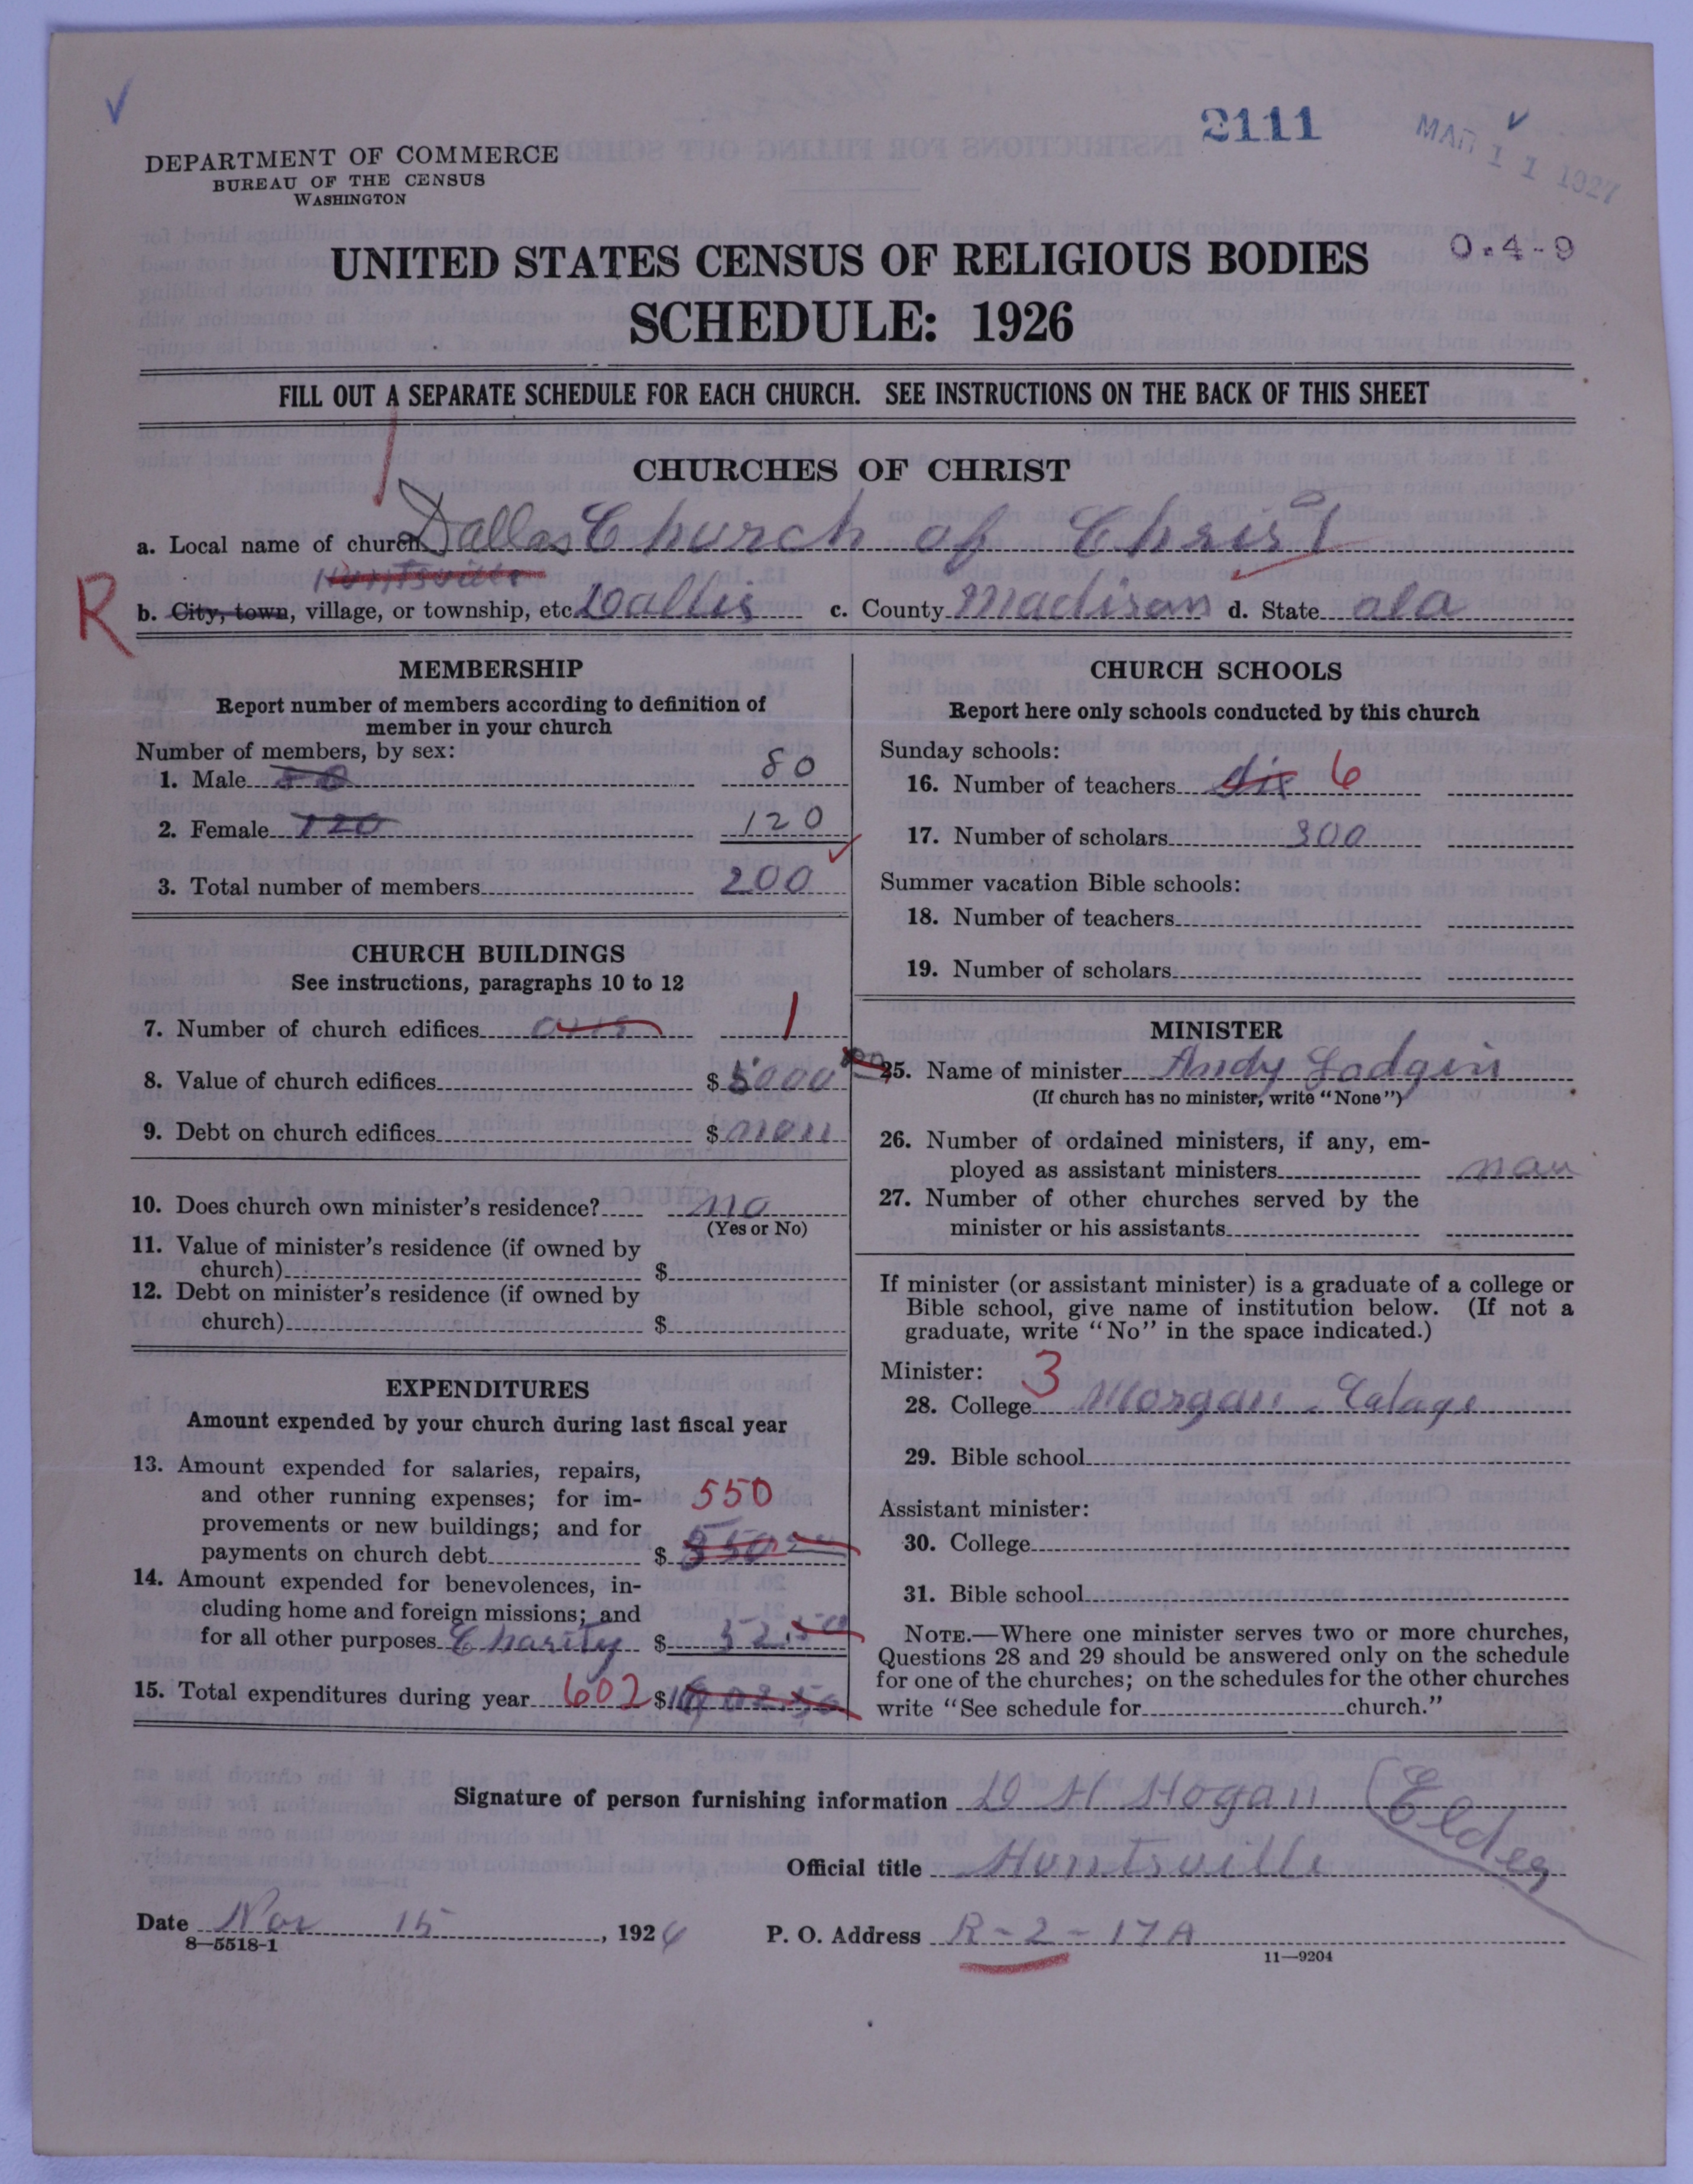 2111
MAR 11 1927
DEPARTMENT OF COMMERCE
BUREAU OF THE CENSUS
WASHINGTON
UNITED STATES CENSUS OF RELIGIOUS BODIES
0-4-9
SCHEDULE: 1926
FILL OUT A SEPARATE SCHEDULE FOR EACH CHURCH. SEE INSTRUCTIONS ON THE BACK OF THIS SHEET
CHURCHES OF CHRIST
a. Local name of church Dallas Church of Christ
Huntsville
R
b. City, town, village, or township, etc. Dallis c. County Madison d. State ala
MEMBERSHIP
Report number of members according to definition of
member in your church
Number of members, by sex:
1. Male 80 80
2. Female 120 120
3. Total number of members 200
CHURCH BUILDINGS
See instructions, paragraphs 10 to 12
7. Number of church edifices 1
8. Value of church edifices $ 5000 00
9. Debt on church edifices $ non
10. Does church own minister's residence? no
(Yes or No)
11. Value of minister's residence (if owned by
church) $
12. Debt on minister's residence (if owned by
church) $
EXPENDITURES
Amount expended by your church during last fiscal year
13. Amount expended for salaries, repairs,
and other running expenses; for im- 550
provements or new buildings; and for
payments on church debt $ 550
14. Amount expended for benevolences, in-
cluding home and foreign missions; and
for all other purposes Charity $ 52.50
15. Total expenditures during year 602 $
CHURCH SCHOOLS
Report here only schools conducted by this church
Sunday schools:
16. Number of teachers six 6
17. Number of scholars 300
Summer vacation Bible schools:
18. Number of teachers
19. Number of scholars
MINISTER
25. Name of minister Andy
(If church has no minister, write "None")
26. Number of ordained ministers, if any, em-
ployed as assistant ministers nan
27. Number of other churches served by the
minister or his assistants
If minister (or assistant minister) is a graduate of a college or
Bible school, give name of institution below. (If not a
graduate, write "No" in the space indicated.)
Minister: 3
28. College Morgan Calage
29. Bible school
Assistant minister:
30. College
31. Bible school
NOTE.—Where one minister serves two or more churches,
Questions 28 and 29 should be answered only on the schedule
for one of the churches; on the schedules for the other churches
write "See schedule for church."
Signature of person furnishing information D H Hogan (Elder
Official title Huntsville
Date Nov 15, 1926 P. O. Address R-2-17A
8—5518-1
11—9204